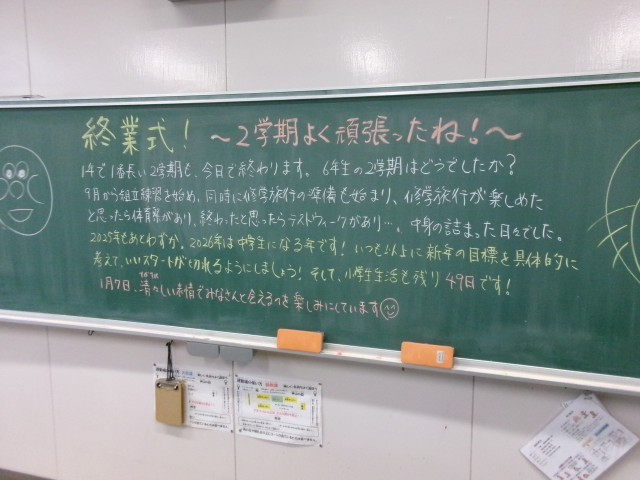 終業式! ～2学期よく頑張ったね!～
1年で1番長い2学期も、今日で終わります。6年生の2学期はどうでしたか?
9月から組立練習を始め、同時に修学旅行の準備も始まり、修学旅行が楽しめた
と思ったら体育祭があり、終わったと思ったらテストウィークがあり…、中身の詰まった日々でした。
2025年もあとわずか。2026年は中学生になる年です!いつも以上に新年の目標を具体的に
考えて、いいスタートが切れるようにしましょう!そして、小学生生活も残り49日です!
1月7日、清々しい表情でみなさんと会えるのを楽しみにしています
すがすが